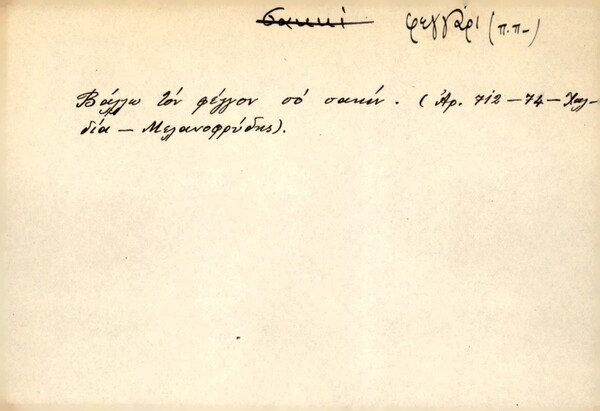 σακκί φεγγάρι (π.π-)
Βάλλω τόν φέγγον σό σακίν. (Ἀρ. 712-74-Χαλ-
δία - Μελανοφρύδης).